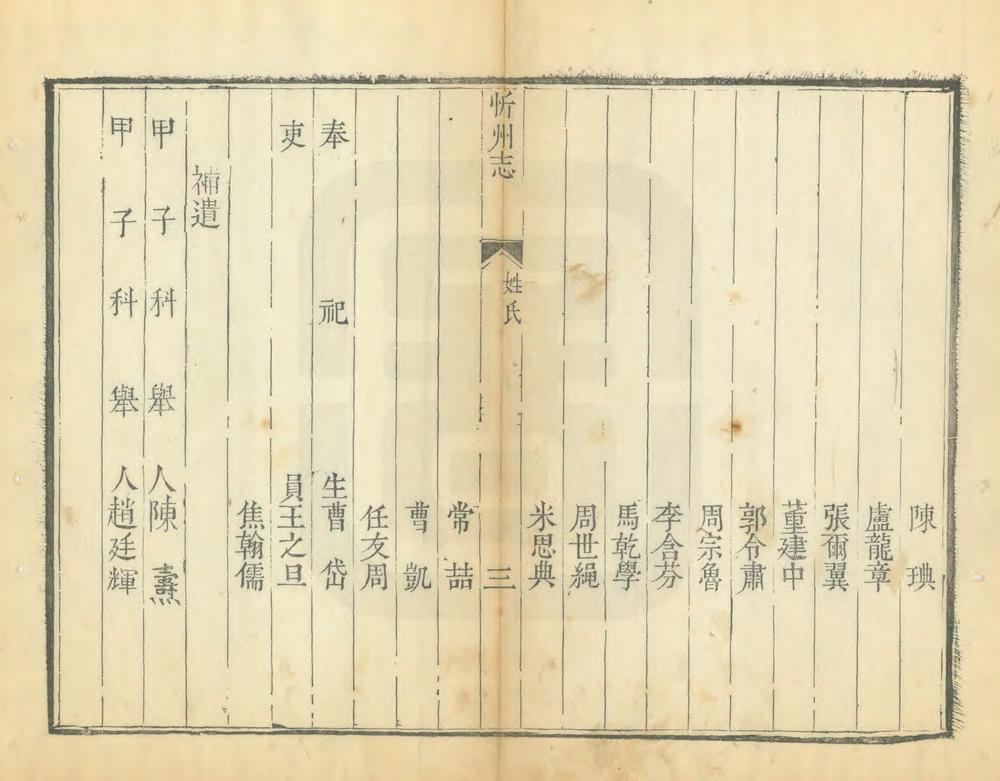 陳琠
盧龍章
張爾翼
董建中
郭令肅
周宗魯
李含芬
馬乾學
周世繩
米思典
忻州志 姓氏 三
常喆
曹凱
任友周
奉祀生曹岱
吏員王之旦
焦翰儒
補遺
甲子科舉人陳燾
甲子科舉人趙廷輝